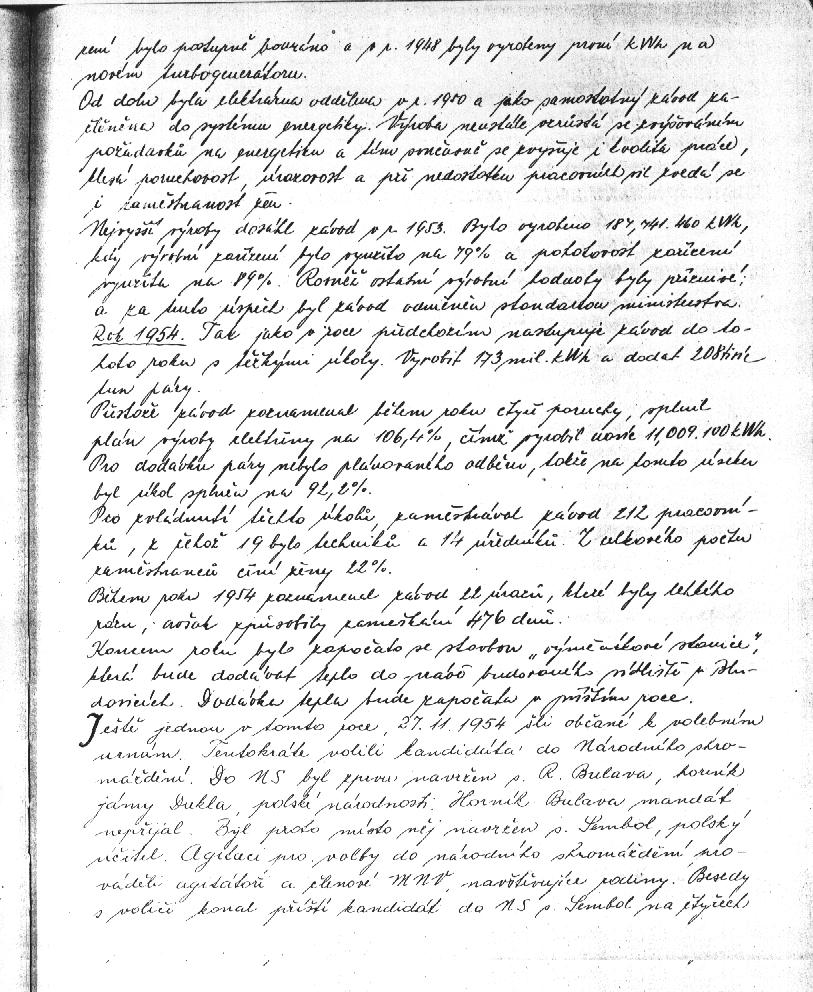 ření bylo postupně bouráno a v r. 1948 byly vyrobeny první kWh na
novém turbogenerátoru.
Od dolu byla elektrárna oddělena v r. 1950 a jako samostatný závod za-
členěna do systému energetiky. Výroba neustále vzrůstá se zvyšováním
požadavků na energetiku a tím současně se zvyšuje i kvalita práce,
klesá poruchovost, úrazovost a při nedostatku pracovních sil zvedá se
i zaměstnanost žen.
Nejvyšší výroby dosáhl závod v r. 1953. Bylo vyrobeno 187,741.460 kWh,
kdy výrobní zařízení bylo využito na 79% a pohotovost zařízení
využita na 89%. Rovněž ostatní výrobní hodnoty byly příznivé;
a za tento úspěch byl závod odměněn standartou ministerstva.
Rok 1954. Tak jako v roce předchozím nastupuje závod do to-
hoto roku s těžkými úkoly. Vyrobit 173 mil. kWh a dodat 208 tisíc
tun páry.
Přestože závod zaznamenal během roku čtyři poruchy, splnil
plán výroby elektřiny na 106,4%, čímž vyrobil navíc 11,009.100 kWh.
Pro dodávku páry nebylo plánovaného odběru, takže na tomto úseku
byl úkol splněn na 92,2%.
Pro zvládnutí těchto úkolů, zaměstnával závod 212 pracovní-
ků, z čehož 19 bylo techniků a 14 úředníků. Z celkového počtu
zaměstnanců činí ženy 22%.
Během roku 1954 zaznamenal závod 22 úrazů, které byly lehkého
rázu, avšak způsobily zameškání 476 dnů.
Koncem roku bylo započato se stavbou „výměníkové stanice",
která bude dodávat teplo do nově budovaného sídliště v Blu-
dovicích. Dodávka tepla bude započata v příštím roce.
Ještě jednou v tomto roce, 27.11.1954 šli občané k volebním
urnám. Tentokráte volili kandidáta do Národního shro-
máždění. Do NS byl zprvu navržen s. R. Bulava, horník
jámy Dukla, polské národnosti. Horník Bulava mandát
nepřijal. Byl proto místo něj navržen s. Sembol, polský
učitel. Agitaci pro volby do národního shromáždění pro-
váděli agitátoři a členové MNV, navštěvujíce rodiny. Besedy
s voliči konal příští kandidát do NS s. Sembol na čtyřech